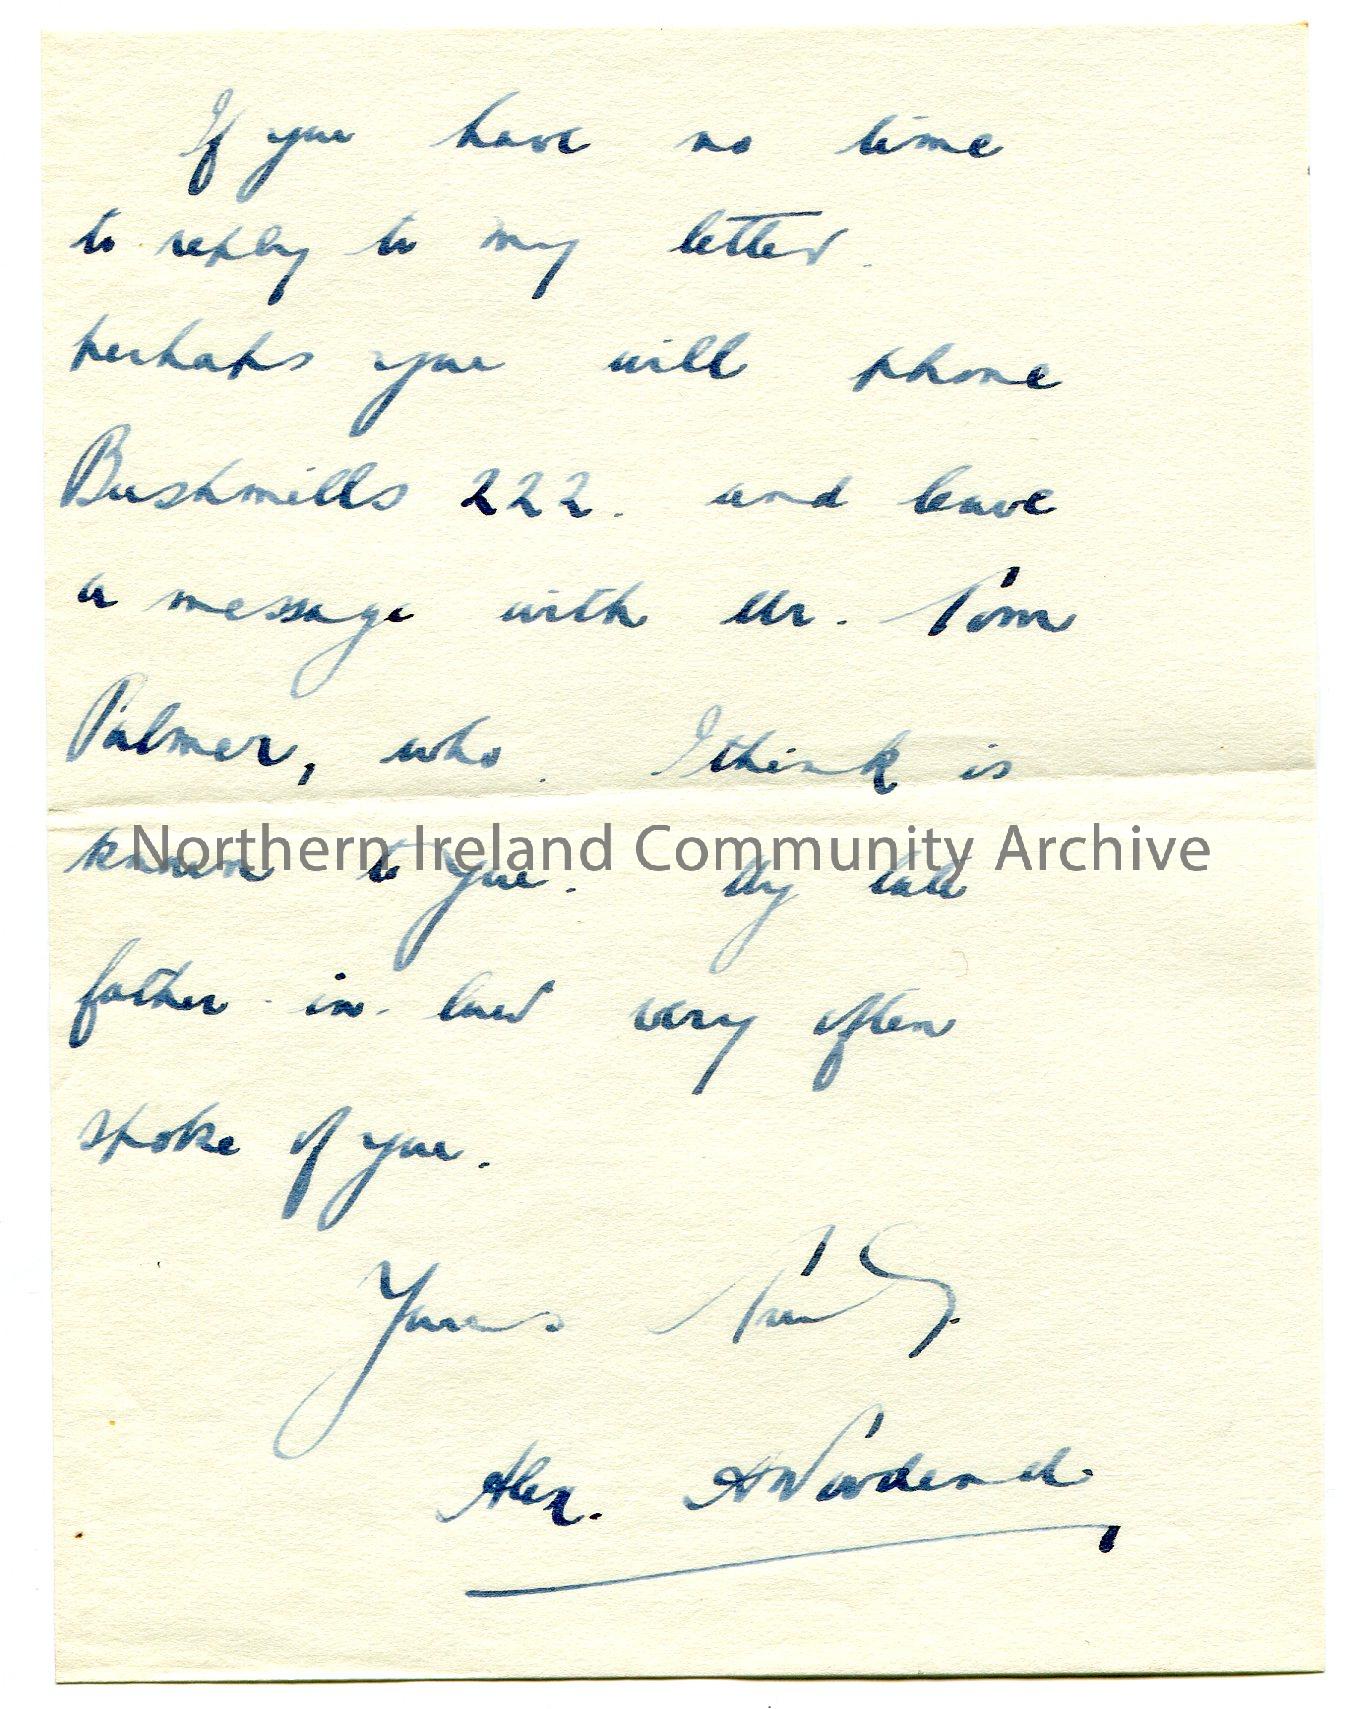 If you have no time
to reply to my letter.
perhaps you will phone
Bushmills 222. and leave
a message with Mr. Tom
Palmer, who. I think is
Northern Ireland Community Archive
known to you. My late
father-in-law very often
spoke of you.
Yours
Alex.